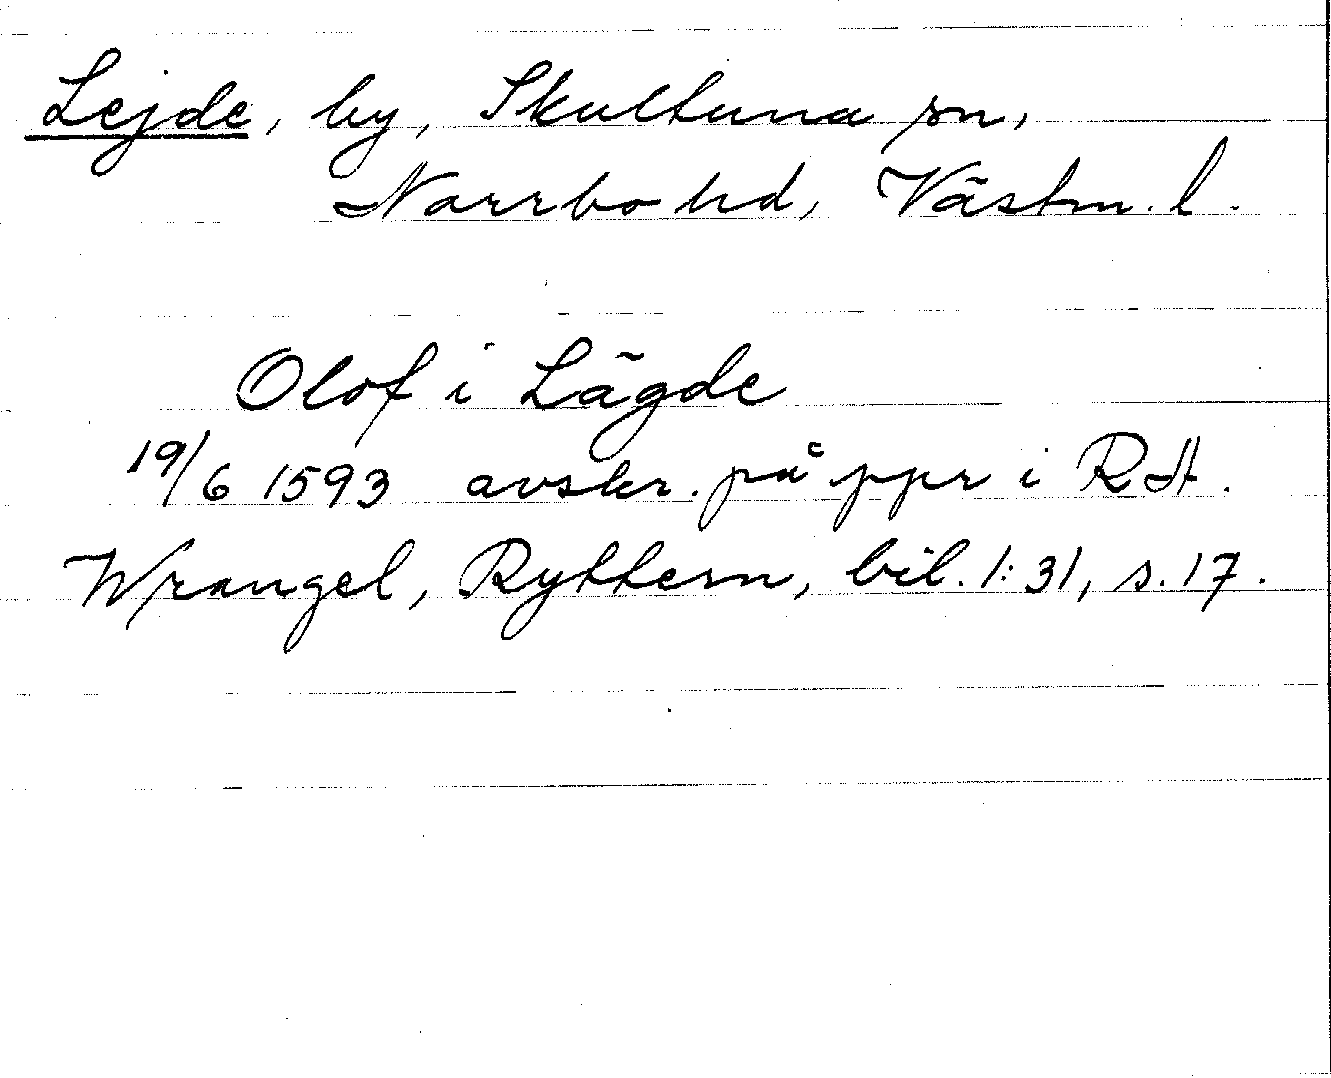 Lejde, by, Skultuna sn,
Norrbo hd, Västm. l.
Olof i Lägde
19/6 1593 avskr. på ppr i RA.
Wrangel, Ryttern, bil. 1:31, s. 17.